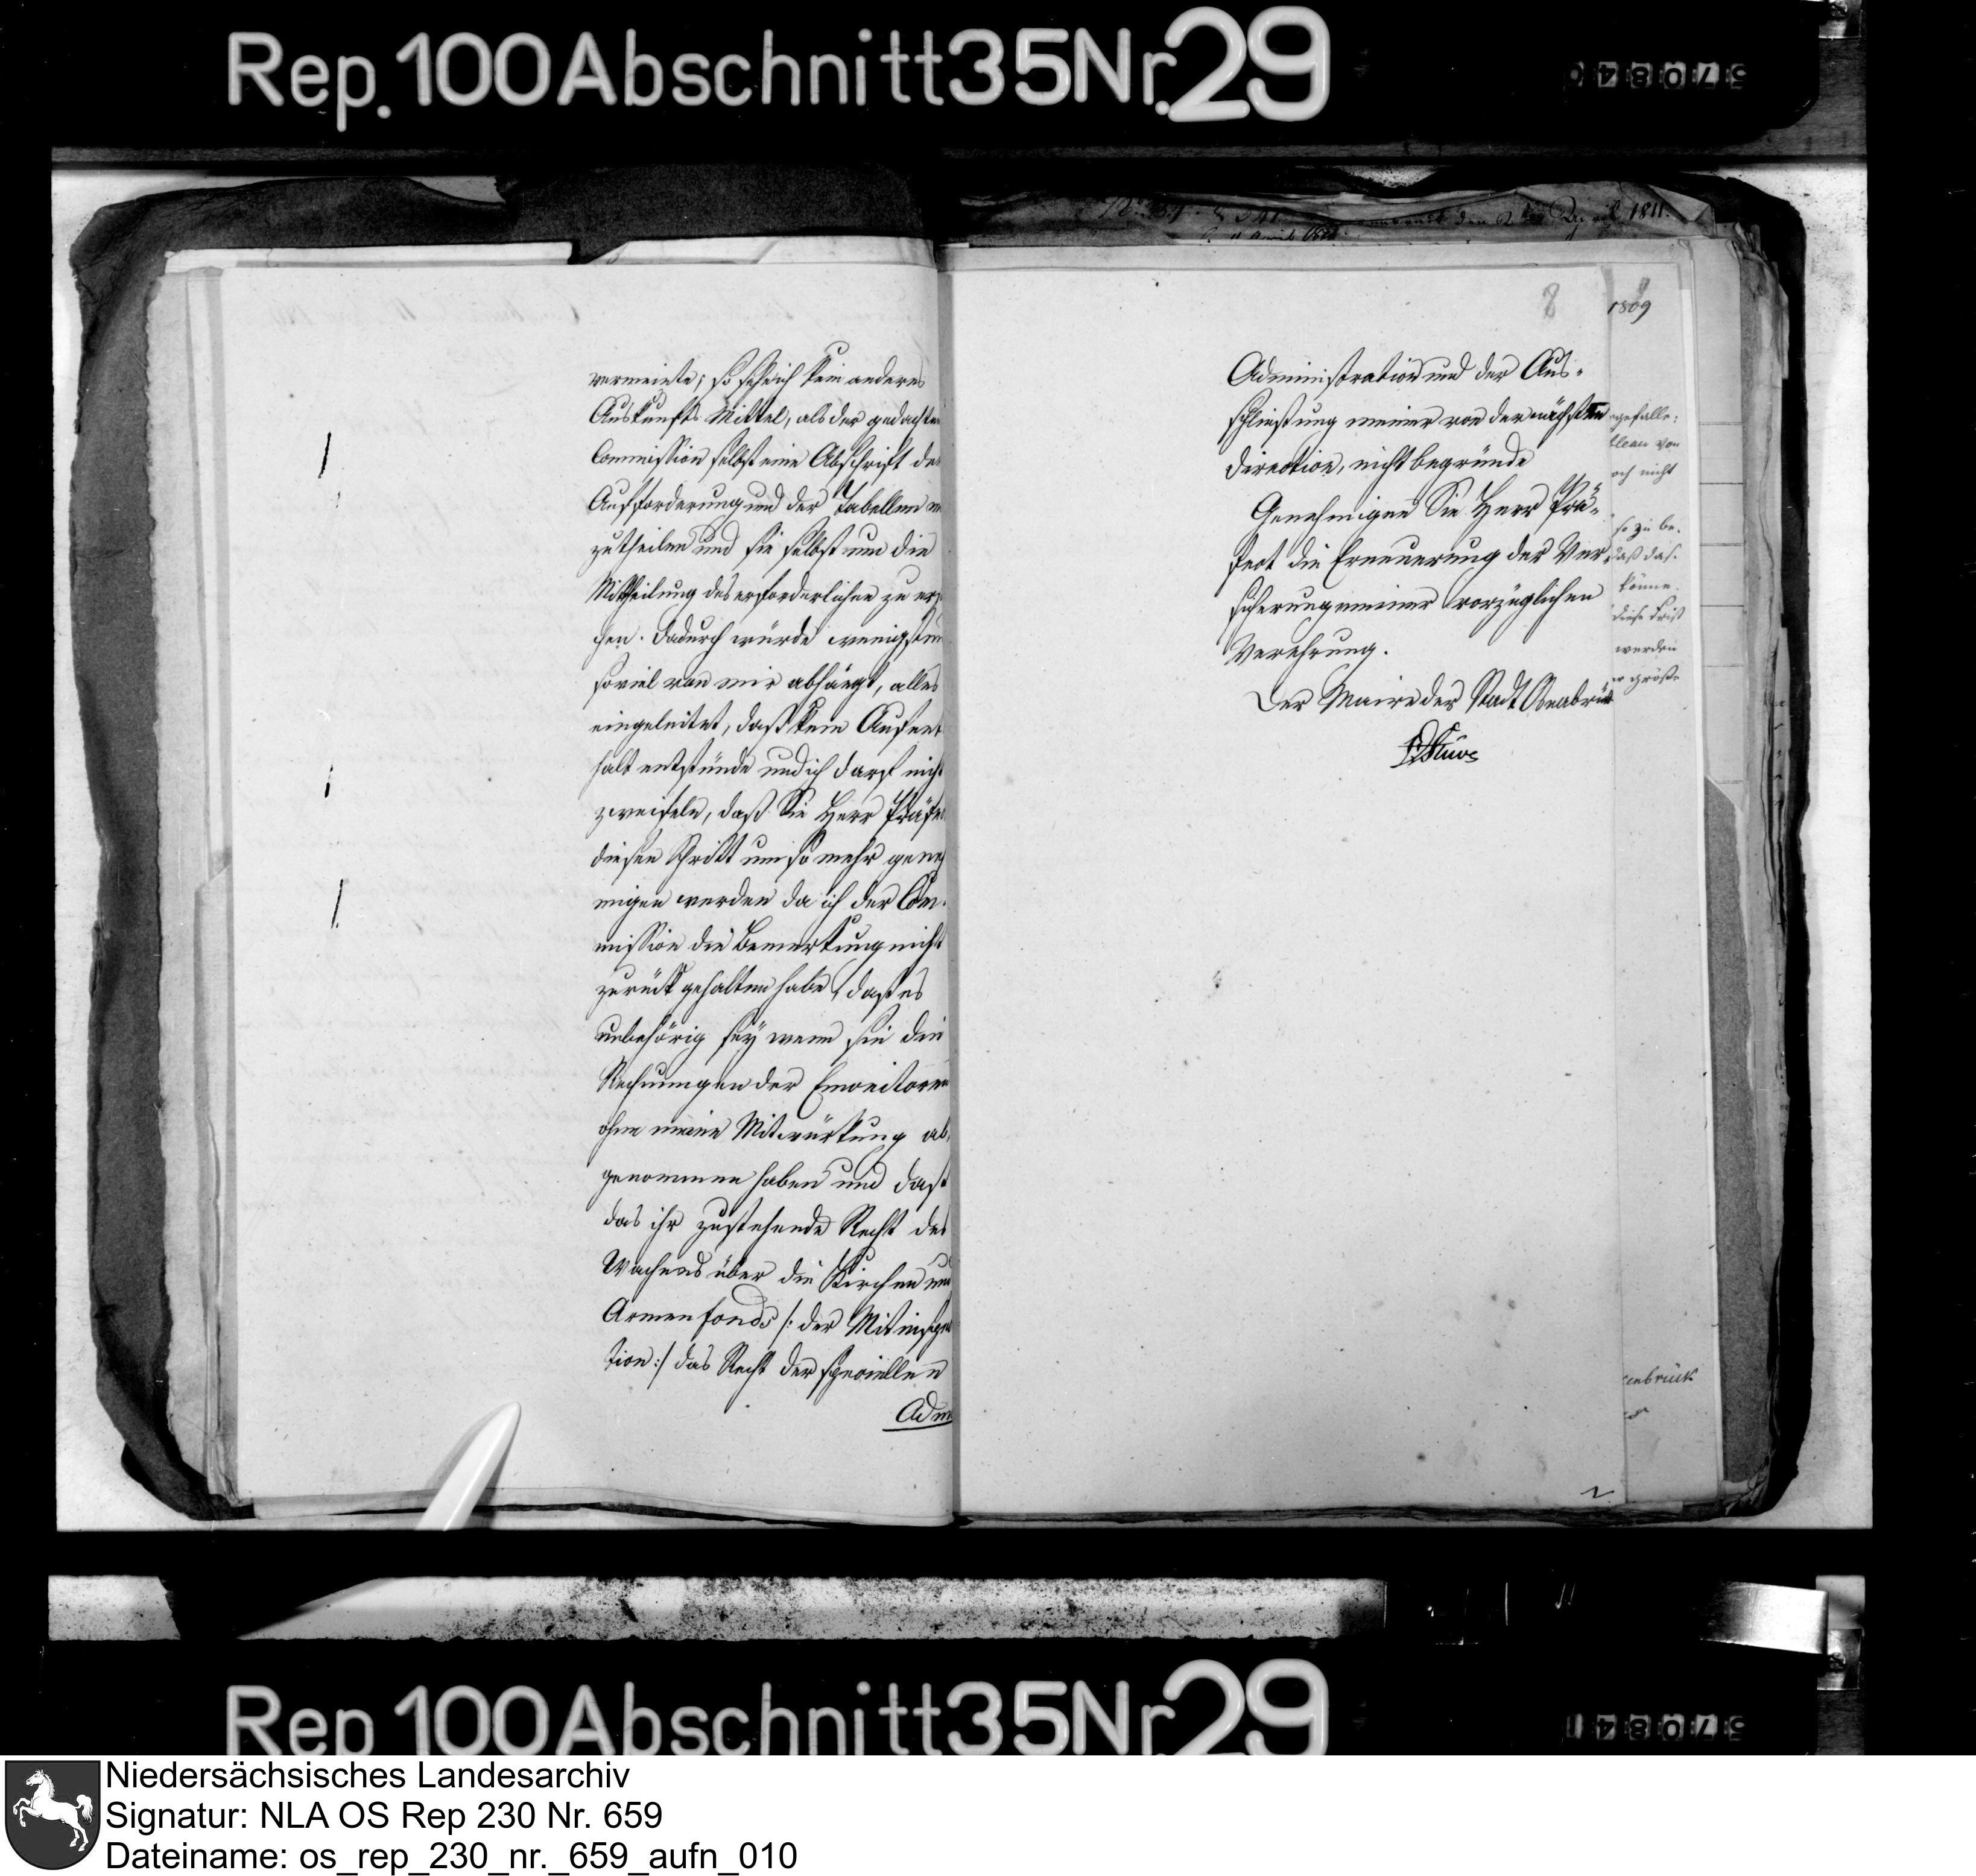 Rep. 100 Abschnitt 35 Nr. 29
den 2ten April 1811.
vermeinte; so sehe ich kein anderes
Auskunfts Mittel, als der gedachten
Commission selbst eine Abschrift der
Aufforderung und der Tabellen
zutheilen und sie selbst um die
Mittheilung des erforderlichen zu ersu
chen. Dadurch würde wenigstens
soviel von mir abhängt, alles
eingeleitet, daß kein Aufent
halt entstünde und ich darf nicht
zweifeln, daß Sie Herr Präfe
diesen Schritt um so mehr geneh
migen werden da ich der Com-
mission die Bemerkung nicht
zurück gehalten habe, daß es
unbehörig sey wenn sie die
Rechnungen der Provisoren
ohne meine Mitwürkung ab,
genommen haben und daß
das ihr zustehende Recht des
Wachens über die Kirchen und
Armenfonds /: der Mitinspec
tion :/ das Recht der speciellen
Adm
8
1809
Administration und der Aus-
schließung meiner von der nächsten
direction, nicht begründe
Genehmigen Sie Herr Prä-
fect die Erneuerung der Ver
sicherung meiner vorzüglichen
Verehrung.
Der Maire der Stadt Osnabrük
Stüve
gefalle:
von
och nicht
so zu be-
daß das-
könne.
diese Frist
werden
größe
enbrück
Rep 100 Abschnitt 35 Nr 29
Niedersächsisches Landesarchiv
Signatur: NLA OS Rep 230 Nr. 659
Dateiname: os_rep_230_nr._659_aufn_010